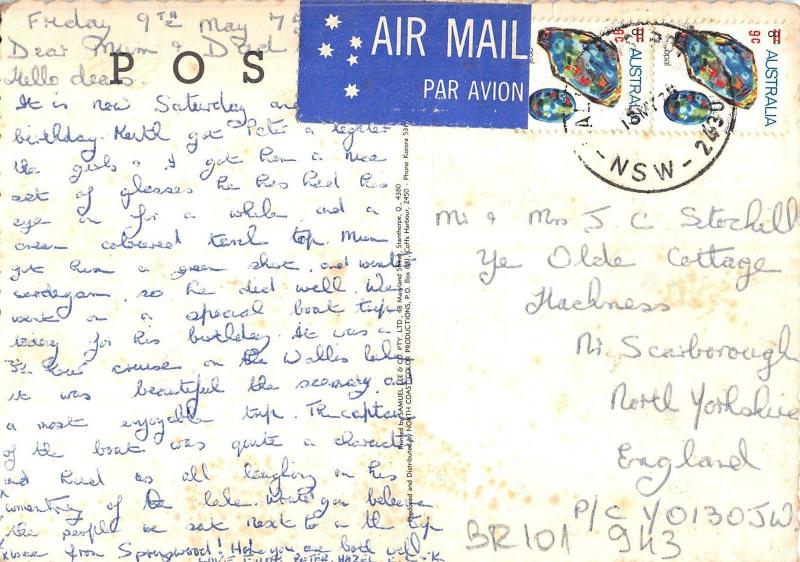 Friday 9TH May 75
Dear Mum & Dad
Hello dears
POS
It is now Saturday and
birthday. Keith got Pete a lighter
the girls & I got him a nice
set of glasses he has had his
eye on for a while and a
cream coloured top. Mum
got him a green shirt and
cardegan, so he did well. We
went on a special boat trip
today for his birthday. It was a
hour cruise on the Wallis lake
it was beautiful the scenery and
a most enjoyable trip. The captain
of the boat was quite a character
and had us all laughing in his
comentry of the lake. Would you believe
the people we sat next to on the trip
were from Springwood! Hope you are both well
PETER, HAZEL
AIR MAIL
PAR AVION
9c
AUSTRALIA
9c
AUSTRALIA
NSW - 2430
Printed by SAMUEL LEE & CO. PTY. LTD., 48 Maryland Street, Stanthorpe, Q. 4380
Produced and Distributed by NORTH COAST COLOR PRODUCTIONS, P.O. Box Coffs Harbour, 2450 - Phone Korora
Mr & Mrs J C Stockill
Ye Olde Cottage
Hackness
Nr. Scarborough
North Yorkshire
England
P/C YO130JW.
BR101 9K3